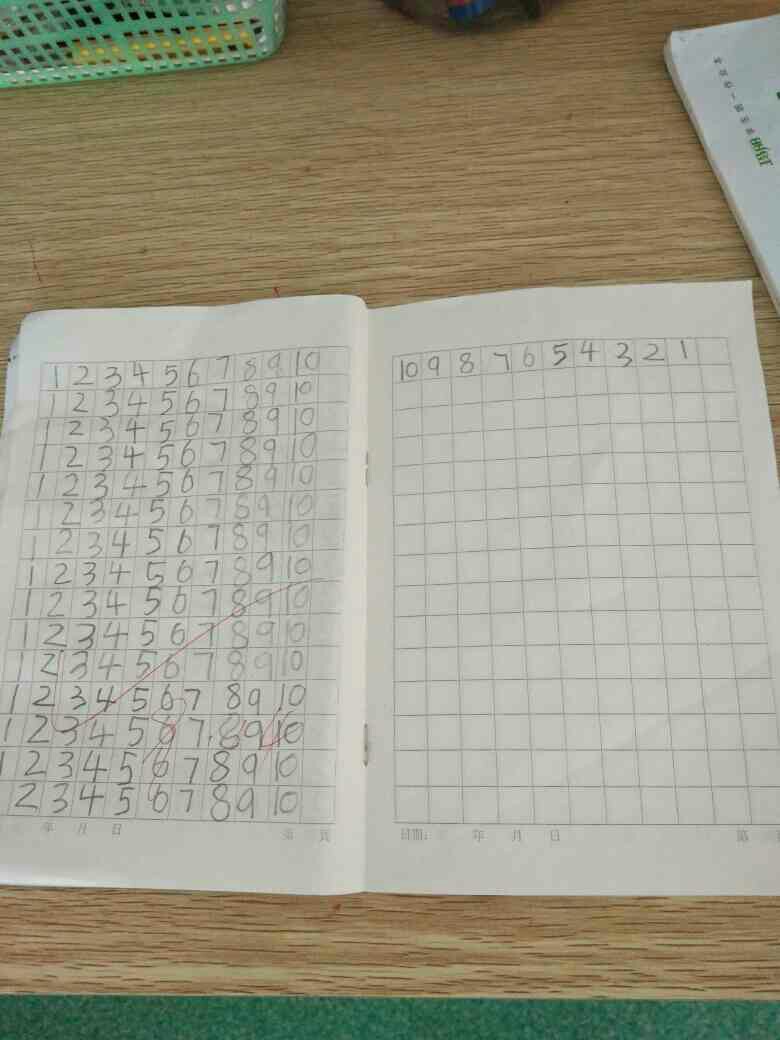 1 2 3 4 5 6 7 8 9 10
1 2 3 4 5 6 7 8 9 10
1 2 3 4 5 6 7 8 9 10
1 2 3 4 5 6 7 8 9 10
1 2 3 4 5 6 7 8 9 10
1 2 3 4 5 6 7 8 9 10
1 2 3 4 5 6 7 8 9 10
1 2 3 4 5 6 7 8 9 10
1 2 3 4 5 6 7 8 9 10
1 2 3 4 5 6 7 8 9 10
1 2 3 4 5 6 7 8 9 10
1 2 3 4 5 6 7 8 9 10
1 2 3 4 5 6 7 8 9 10
1 2 3 4 5 6 7 8 9 10
2 3 4 5 6 7 8 9 10
年 月 日 第 页
10 9 8 7 6 5 4 3 2 1
日期: 年 月 日 第